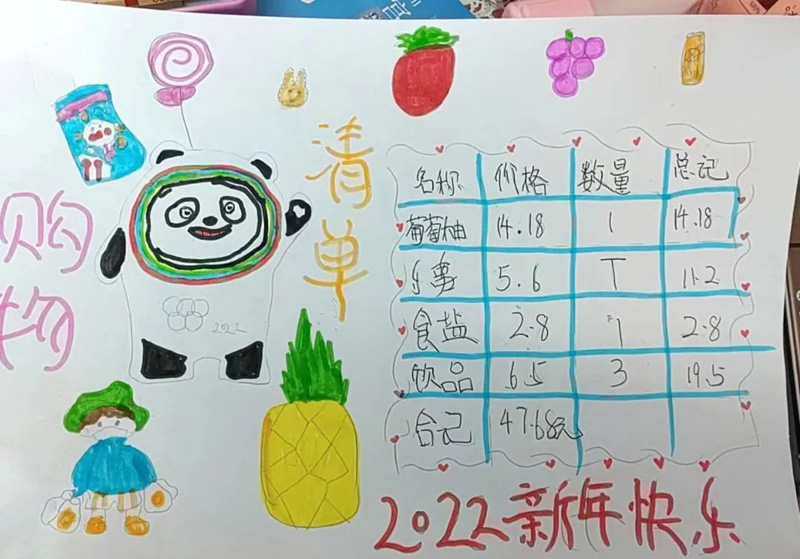 购物
清单
2022
名称 价格 数量 总记
葡萄柚 14.18 1 14.18
乐事 5.6 T 11.2
食盐 2.8 1 2.8
饮品 6.5 3 19.5
合记 47.68元
2022新年快乐